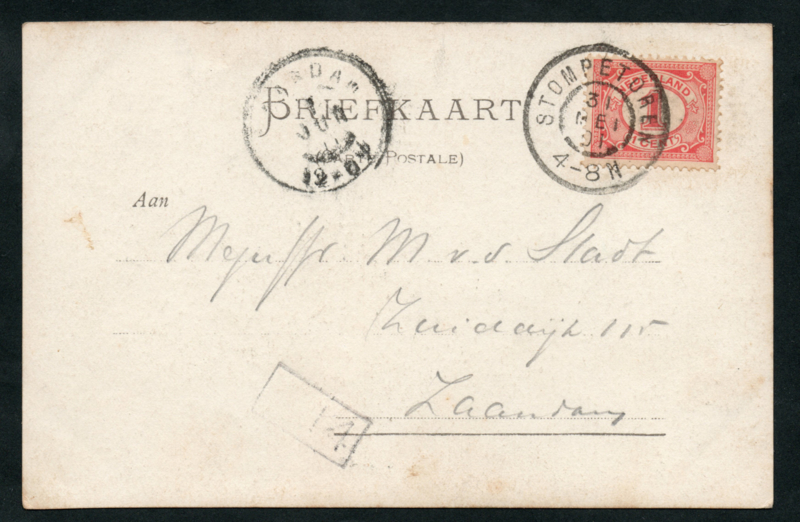 BRIEFKAART
(CARTE POSTALE)
STOMPETOREN
31
MEI
01
4-8N
NEDERLAND
1
CENT
JUN
12-
Aan
Mejuffr. M. v. d. Stadt
Zuiddijk 115
Zaandam
14